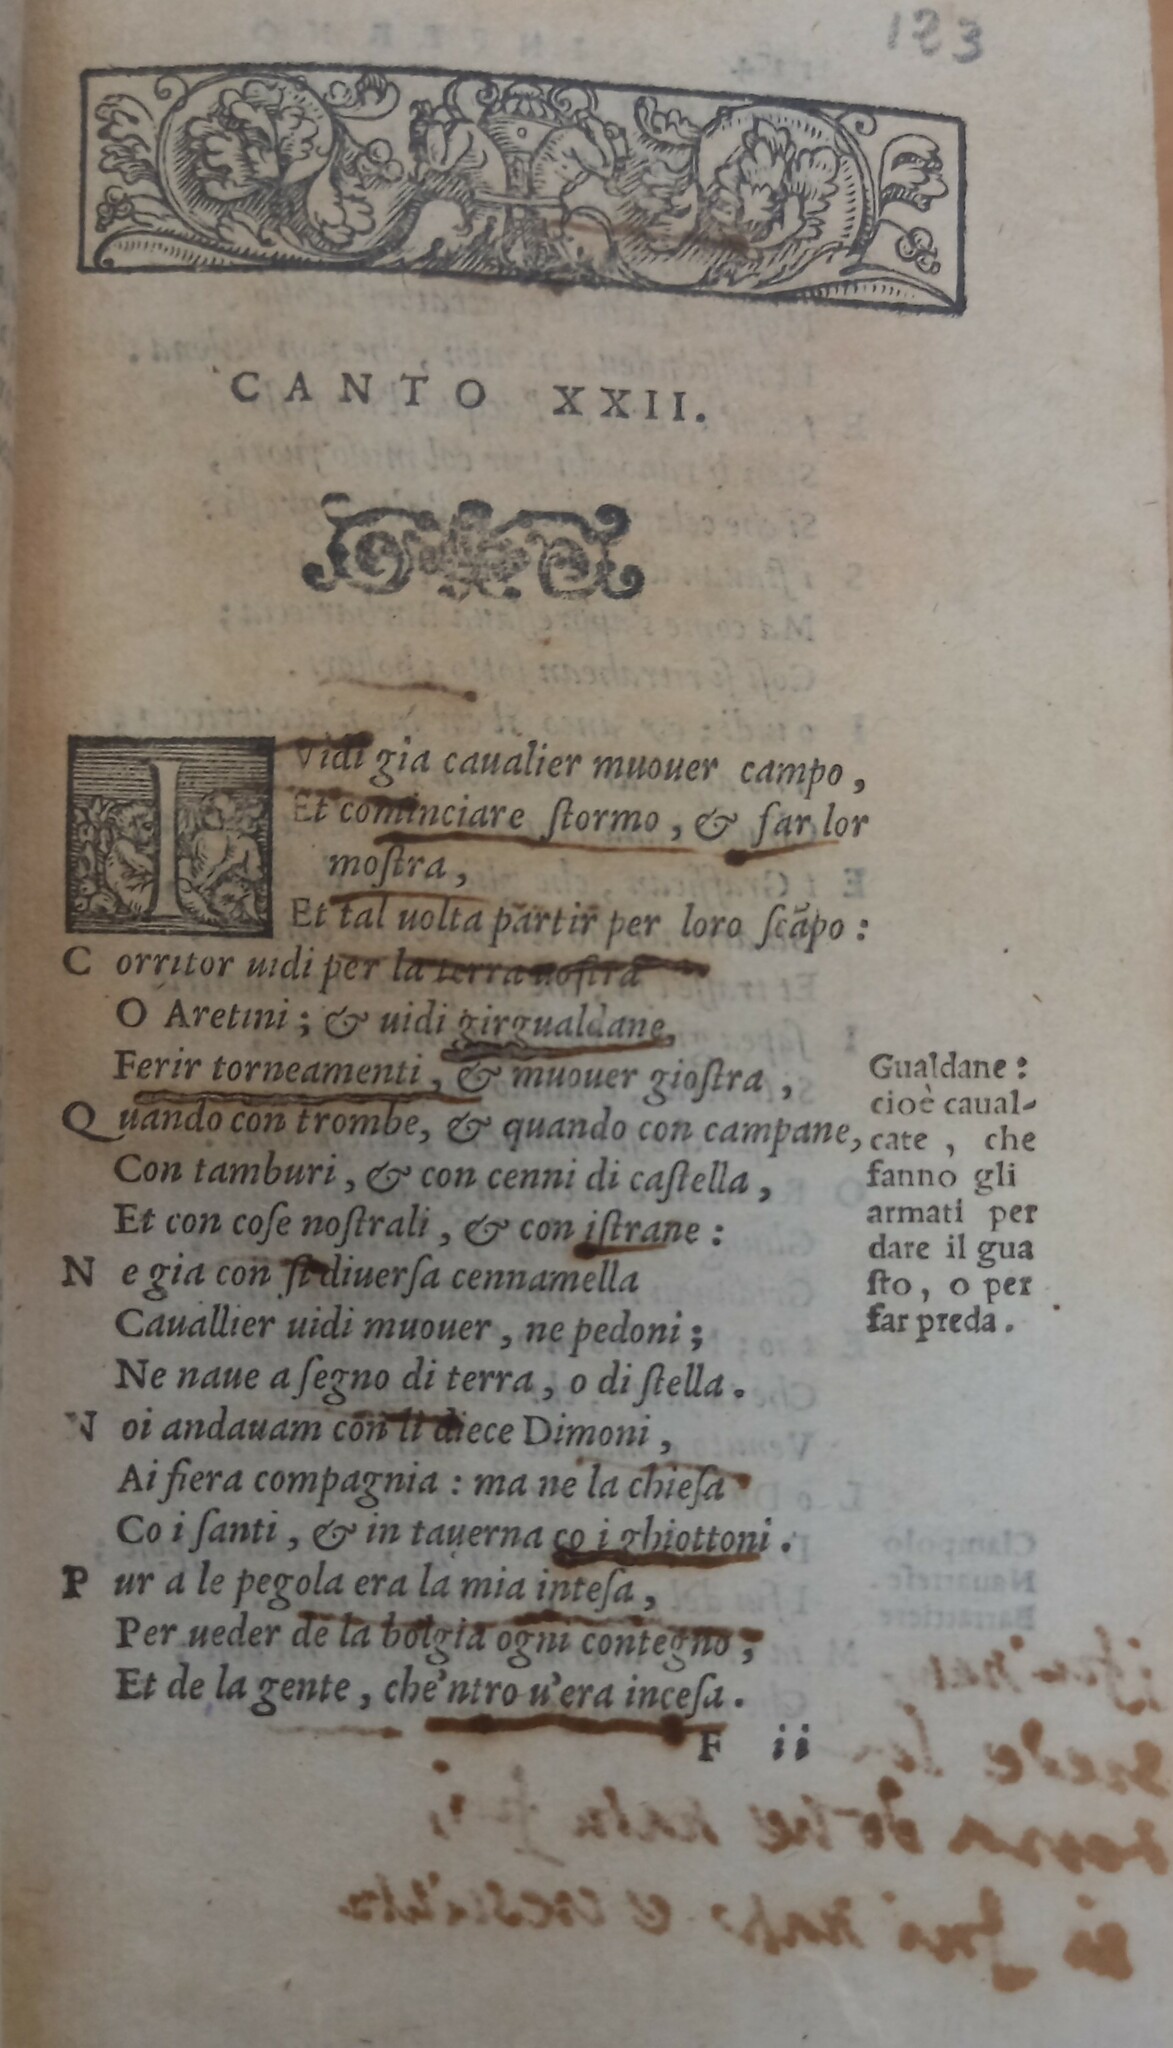 123
CANTO XXII.
I Vidi gia caualier muouer campo,
Et cominciare ſtormo, & far lor
moſtra,
Et tal uolta partir per loro ſcāpo:
C orritor uidi per la terra noſtra
O Aretini; & uidi girgualdane,
Ferir torneamenti, & muouer gioſtra,
Quando con trombe, & quando con campane,
Con tamburi, & con cenni di caſtella,
Et con coſe noſtrali, & con iſtrane:
N e gia con ſi diuerſa cennamella
Cauallier uidi muouer, ne pedoni;
Ne naue a ſegno di terra, o di ſtella.
N oi andauam con li diece Dimoni,
Ai fiera compagnia: ma ne la chieſa
Co i ſanti, & in tauerna co i ghiottoni.
P ur a le pegola era la mia inteſa,
Per ueder de la bolgia ogni contegno;
Et de la gente, che'ntro u'era inceſa.
F ii
Gualdane:
cioè caual-
cate, che
fanno gli
armati per
dare il gua
ſto, o per
far preda.